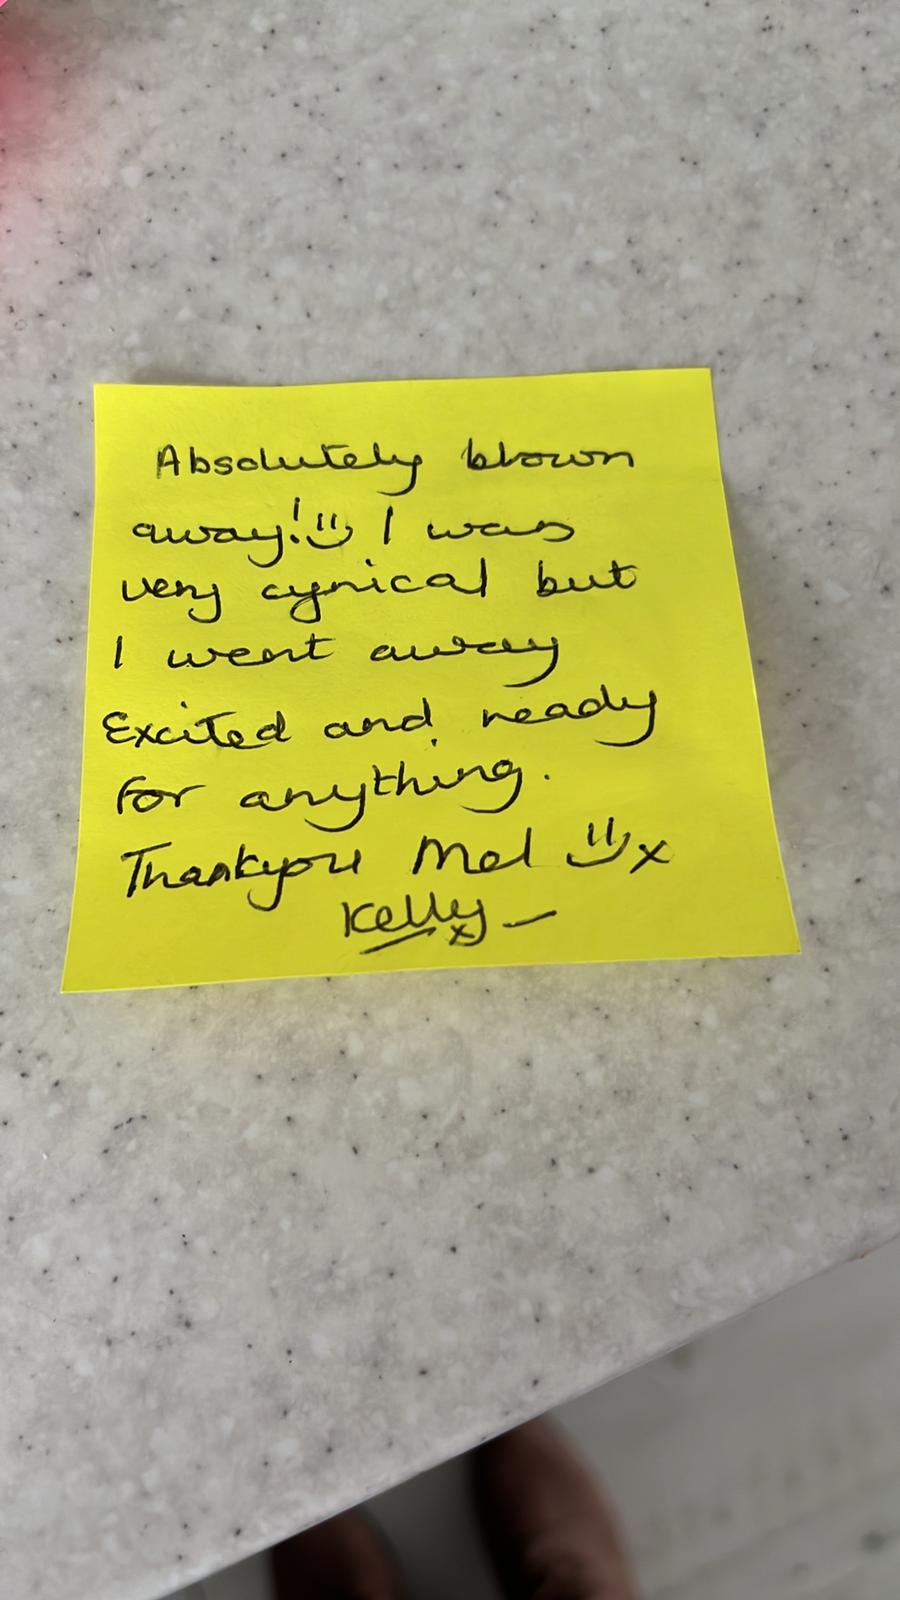 Absolutely blown
away! :) I was
very cynical but
I went away
Excited and ready
for anything.
Thankyou Mel :) x
Kelly x –